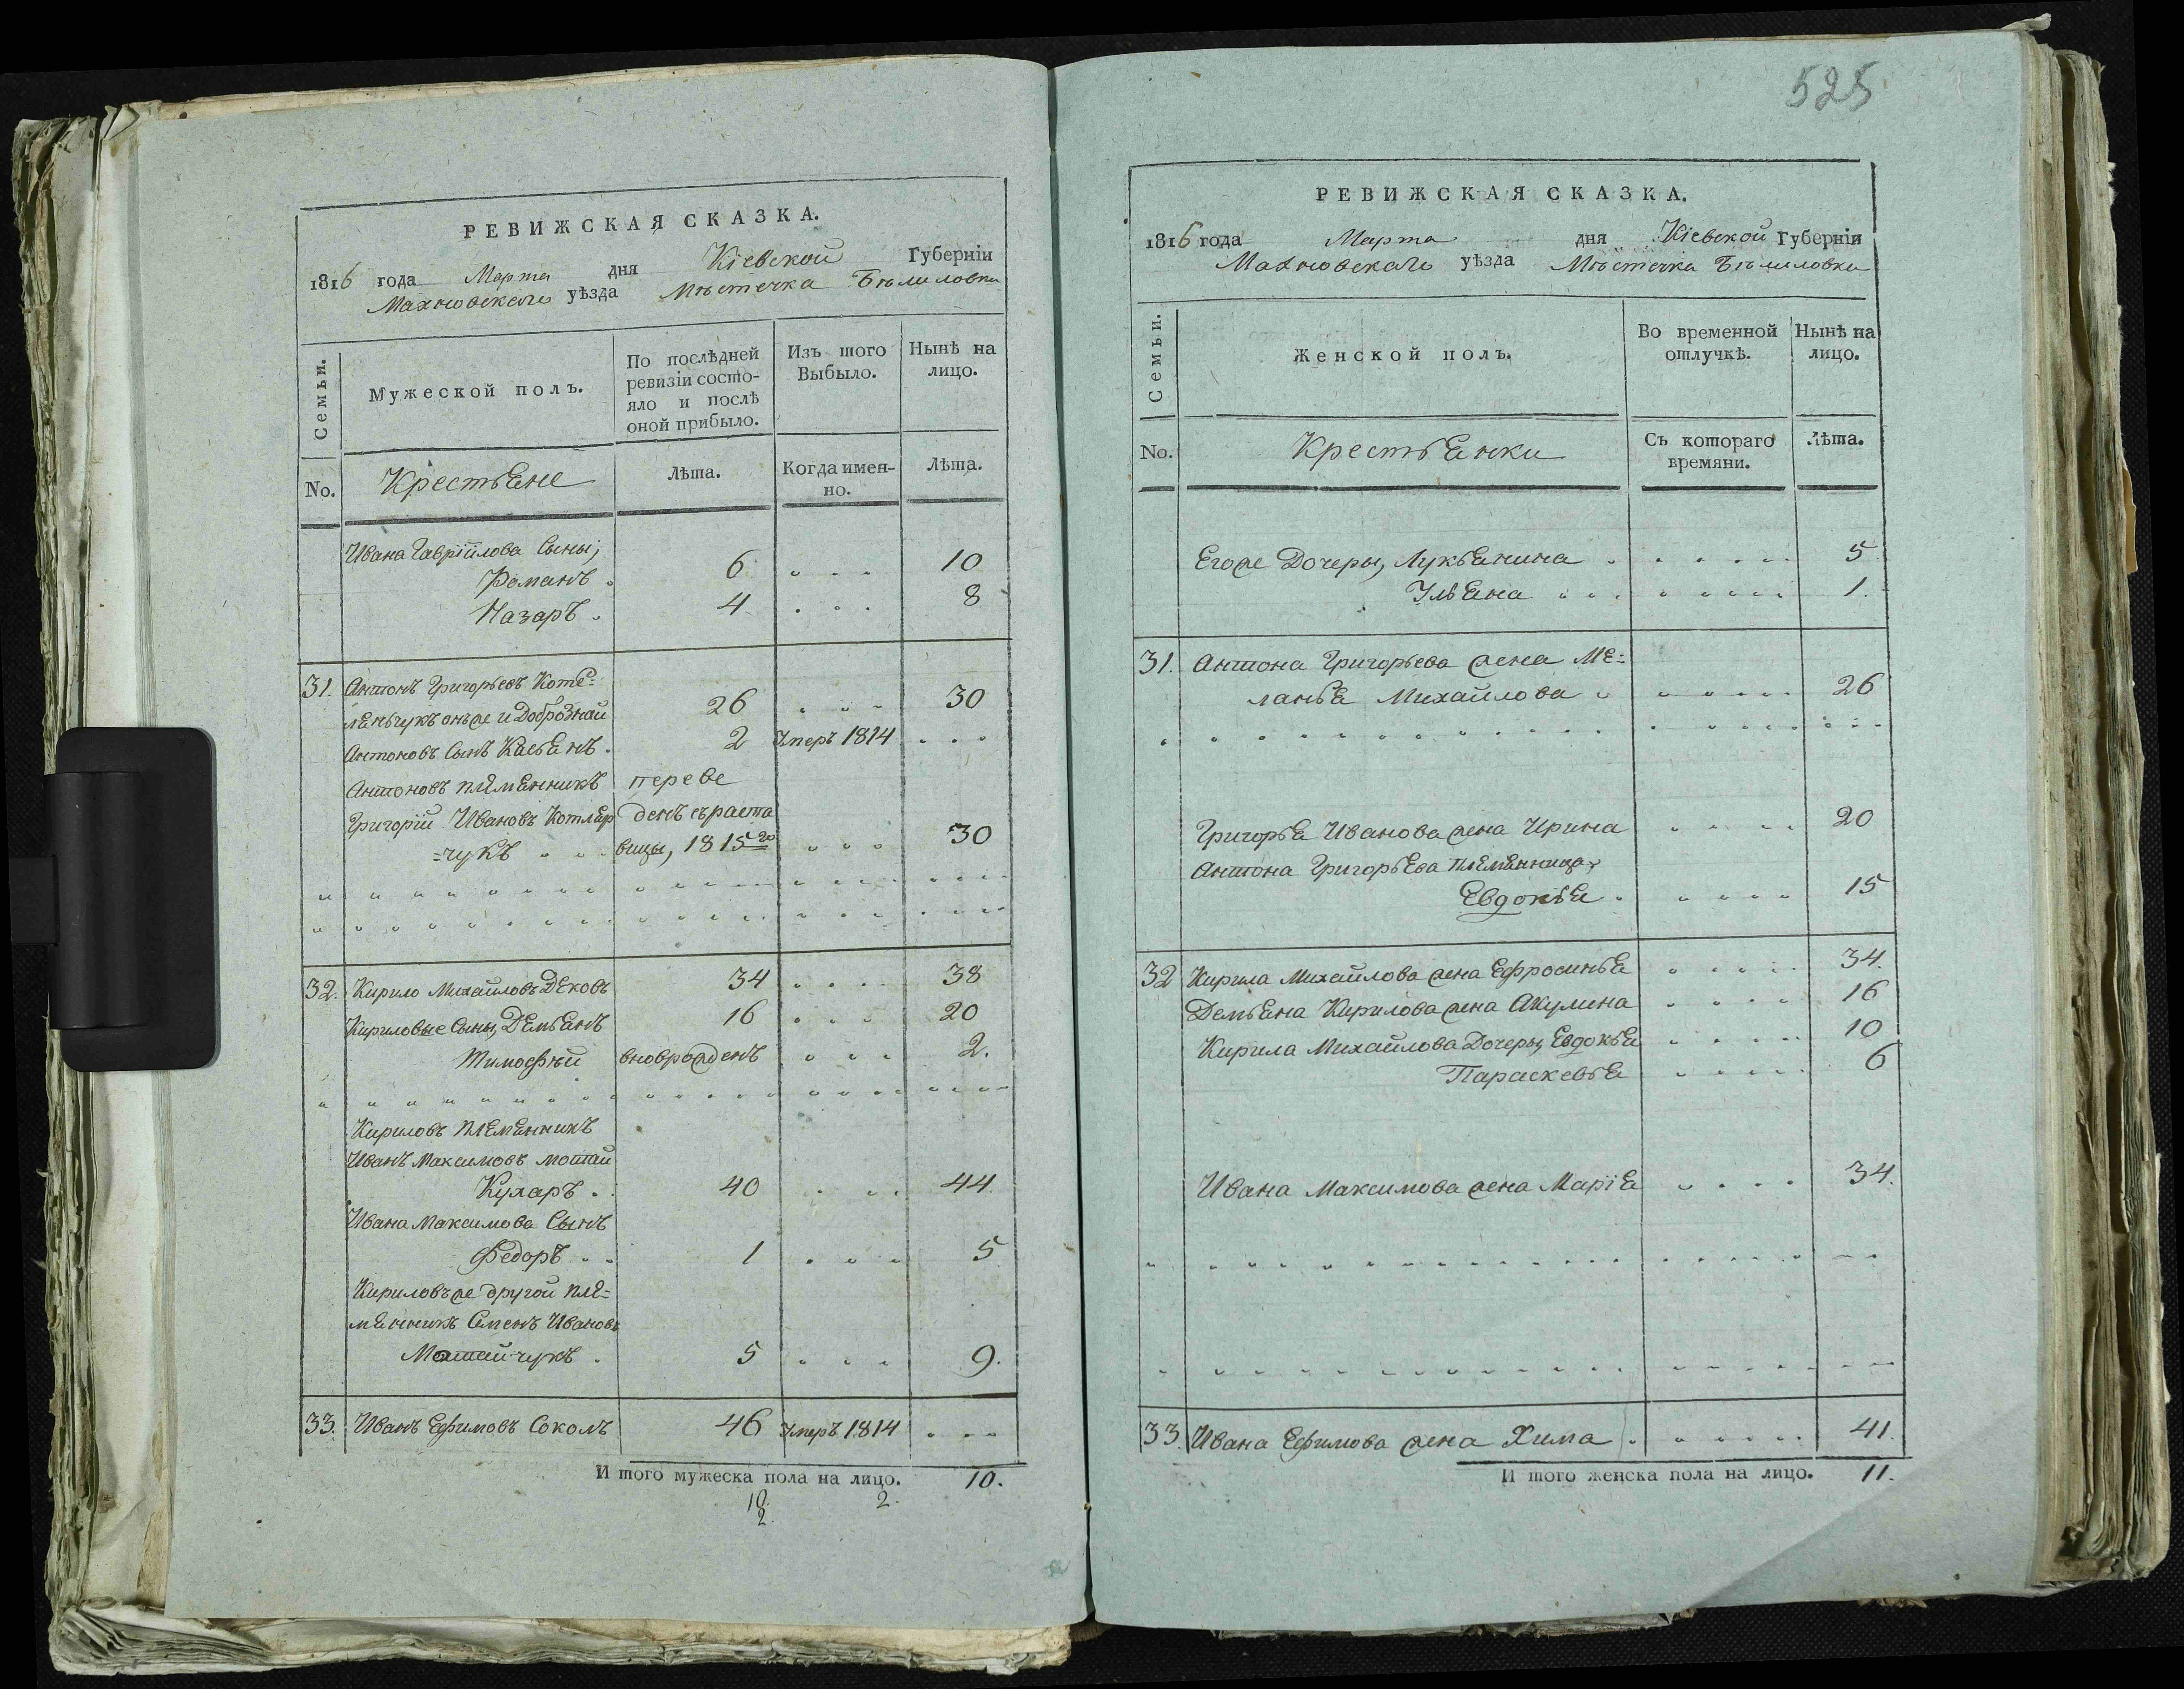 525
РЕВИЖСКАЯ СКАЗКА.
1816 года Марта дня Кіевской Губерніи
Махновскаго уѣзда Мѣстечка Бѣлиловки
Семьи.
Мужеской полъ.
По послѣдней ревизіи состояло и послѣ оной прибыло.
Изъ того Выбыло.
Нынѣ на лицо.
No.
Крестьяне
Лѣта.
Когда именно.
Лѣта.
Ивана Гавріилова Сыны;
Романъ 6 10
Назаръ 4 8
31. Антонъ Григорьевъ Коте=
лянчукъ онъже и Добрознай 26 30
Антоновъ Сынъ Касьянъ 2 Умеръ 1814
Антоновъ племянникъ переве
Григорій Ивановъ Котляр денъ съраста
=чукъ вицы, 1815го 30
32. Кирило Михайловъ Дековъ 34 38
Кириловые Сыны, Демьянъ 16 20
Тимофѣй вноврожденъ 2.
Кириловъ племянникъ
Иванъ Максимовъ мотай
Кухаръ 40 44
Ивана Максимова Сынъ
Федоръ 1 5
Кириловъже другой пле=
мянникъ Семенъ Ивановъ
Мотайчукъ 5 9.
33. Иванъ Ефимовъ Соколъ 46 Умеръ 1814
И того мужеска пола на лицо. 10.
10. 2.
2.
РЕВИЖСКАЯ СКАЗКА.
1816 года Марта дня Кіевской Губерніи
Махновскаго уѣзда Мѣстечка Бѣлиловки
Семьи.
Женской полъ.
Во временной отлучкѣ.
Нынѣ на лицо.
No.
Крестьянки
Съ котораго времяни.
Лѣта.
Егоже Дочеры, Лукьянина 5
Ульяна 1.
31. Антона Григорьева жена Ме=
ланья Михайлова 26
Григорья Иванова жена Ирина 20
Антона Григорьева племянница,
Евдокья 15
32 Кирила Михайлова жена Ефросинья 34.
Демьяна Кирилова жена Акулина 16
Кирила Михайлова Дочеры, Евдокья 10
Параскевья 6
Ивана Максимова жена Марія 34.
33. Ивана Ефимова жена Хима 41.
И того женска пола на лицо. 11.